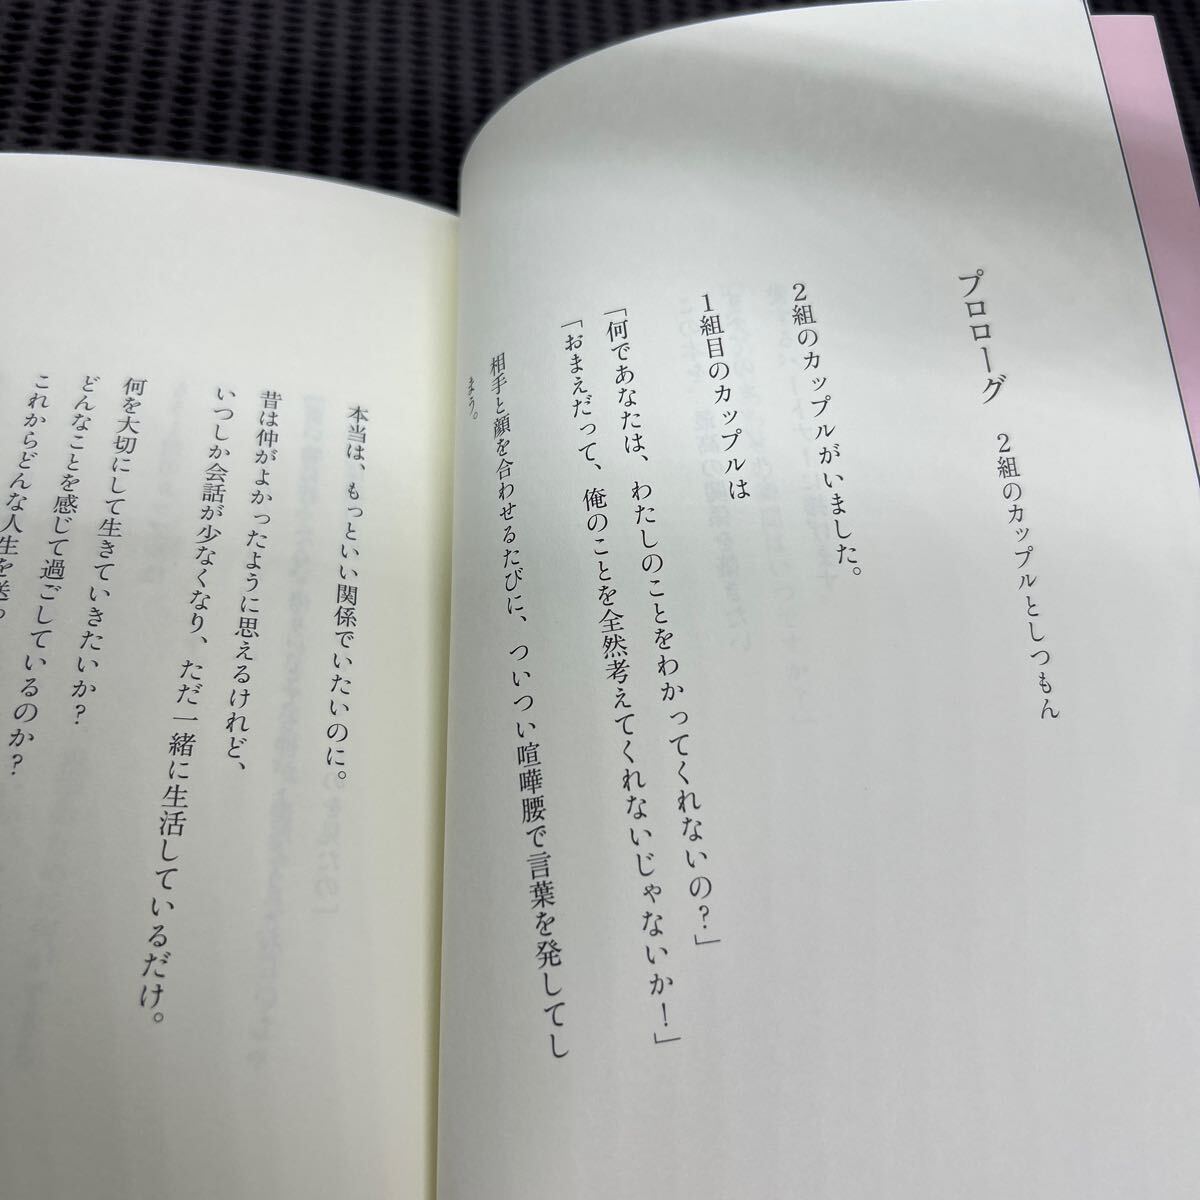 プロローグ　2組のカップルとしつもん
2組のカップルがいました。
1組目のカップルは
「何であなたは、わたしのことをわかってくれないの？」
「おまえだって、俺のことを全然考えてくれないじゃないか！」
相手と顔を合わせるたびに、ついつい喧嘩腰で言葉を発してし
まう。
本当は、もっといい関係でいたいのに。
昔は仲がよかったように思えるけれど、
いつしか会話が少なくなり、ただ一緒に生活しているだけ。
何を大切にして生きていきたいか？
どんなことを感じて過ごしているのか？
これからどんな人生を